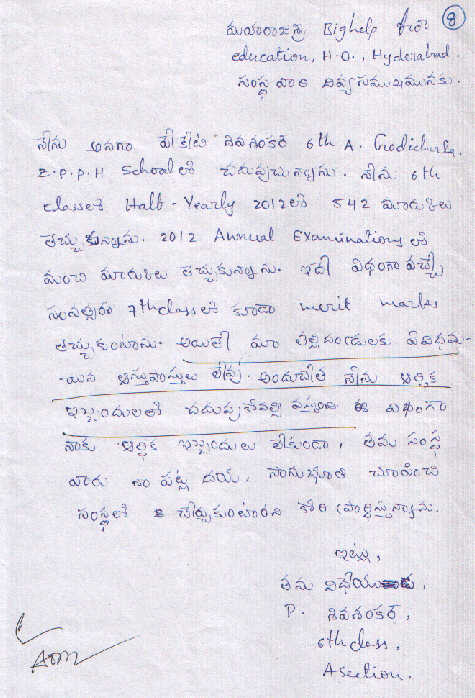 8
మహారాజశ్రీ Bighelp for
education, H.O., Hyderabad.
సంస్థ వారి దివ్యసముఖమునకు.
నేను అనగా పోతేటి శివశంకర్ 6th A. Godicherla.
Z.P.P.H School లో చదువుచున్నాను. నేను 6th
class లో Half-Yearly 2012 లో 542 మార్కులు
తెచ్చుకున్నాను. 2012 Annual Examinations లో
మంచి మార్కులు తెచ్చుకున్నాను. ఇదే విధంగా వచ్చే
సంవత్సరం 7th class లో కూడా merit marks
తెచ్చుకుంటాను. అయితే మా తల్లిదండ్రులకు ఏవిధమ-
-యిన ఆస్తుపాస్తులు లేవు. అందుచేత నేను ఆర్థిక
ఇబ్బందులతో చదువుకోవల్సి వస్తుంది. ఈ విధంగా
నాకు ఆర్థిక ఇబ్బందులు లేకుండా, తమ సంస్థ
వారు నా పట్ల దయ, సానుభూతి చూపించి
సంస్థలో చేర్చుకుంటారని కోరి ప్రార్థిస్తున్నాను.
ఇట్లు,
తమ విధేయుడు,
P. శివశంకర్,
6th class,
A section.